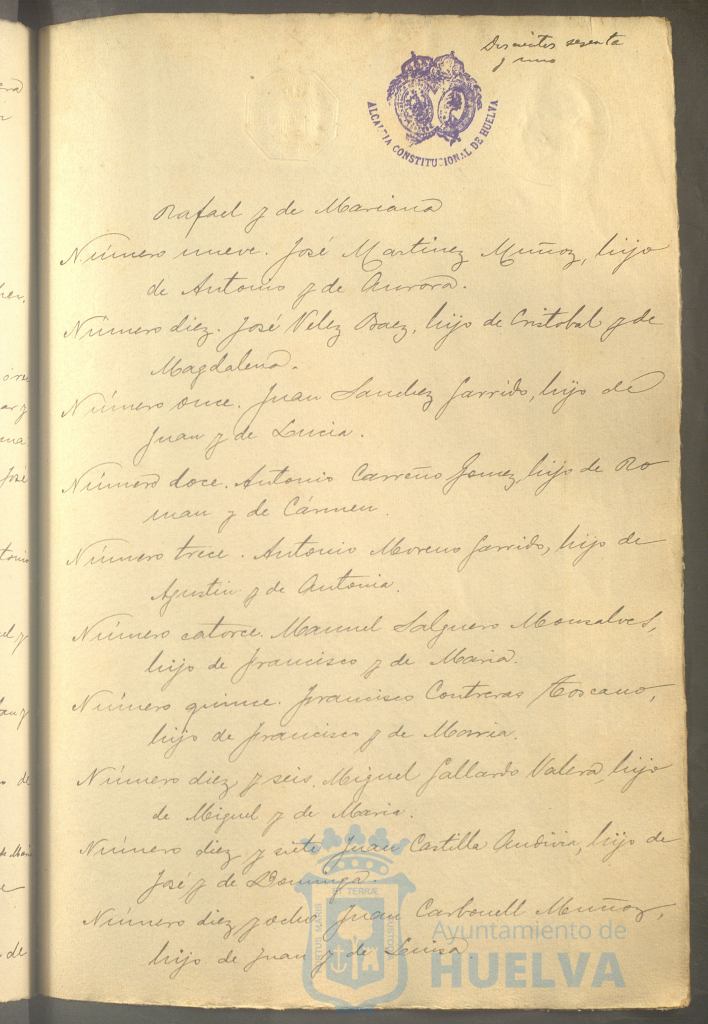 Doscientos sesenta
y uno
ALCALDIA CONSTITUCIONAL DE HUELVA
Rafael y de Mariana
Número nueve. José Martinez Muñoz, hijo
de Antonio y de Aurora.
Número diez. José Velez Baez, hijo de Cristobal y de
Magdalena.
Número once. Juan Sanchez Garrido, hijo de
Juan y de Lucia.
Número doce. Antonio Carreño Gomez, hijo de Ro
man y de Cármen.
Número trece. Antonio Moreno Garrido, hijo de
Agustin y de Antonia.
Número catorce. Manuel Salguero Monsalves,
hijo de Francisco y de Maria.
Número quince. Francisco Contreras Toscano,
hijo de Francisco y de Maria.
Número diez y seis. Miguel Gallardo Valera, hijo
de Miguel y de Maria.
Número diez y siete Juan Castilla Andivia, hijo de
José y de Dominga.
Número diez y ocho Juan Carbonell Muñoz,
hijo de Juan y de Luisa.
Ayuntamiento de
HUELVA